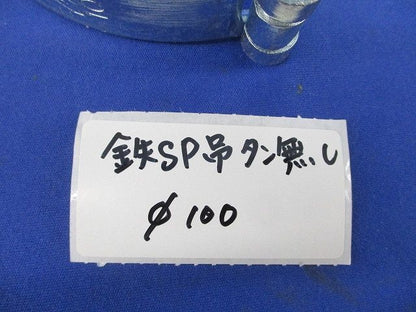 鉄SP吊タン無し
φ100